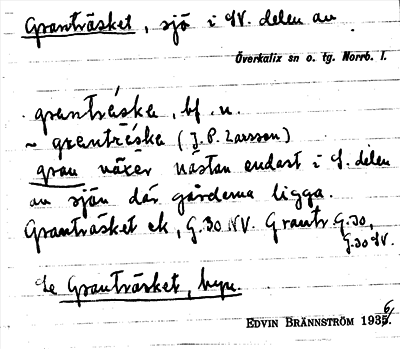 Granträsket, sjö i SV. delen av
Överkalix sn o. tg. Norrb. l.
grantrɛ́ska, bf. n.
~ grɛntrɛ́ska (J.P. Larsson)
gran växer nästan endast i S. delen
av sjön där gårdarna ligga.
Granträsket ek, G.30 NV. Grantr G.30,
G.30 SV.
Se Granträsket, byn.
EDVIN BRÄNNSTRÖM 1935 6/